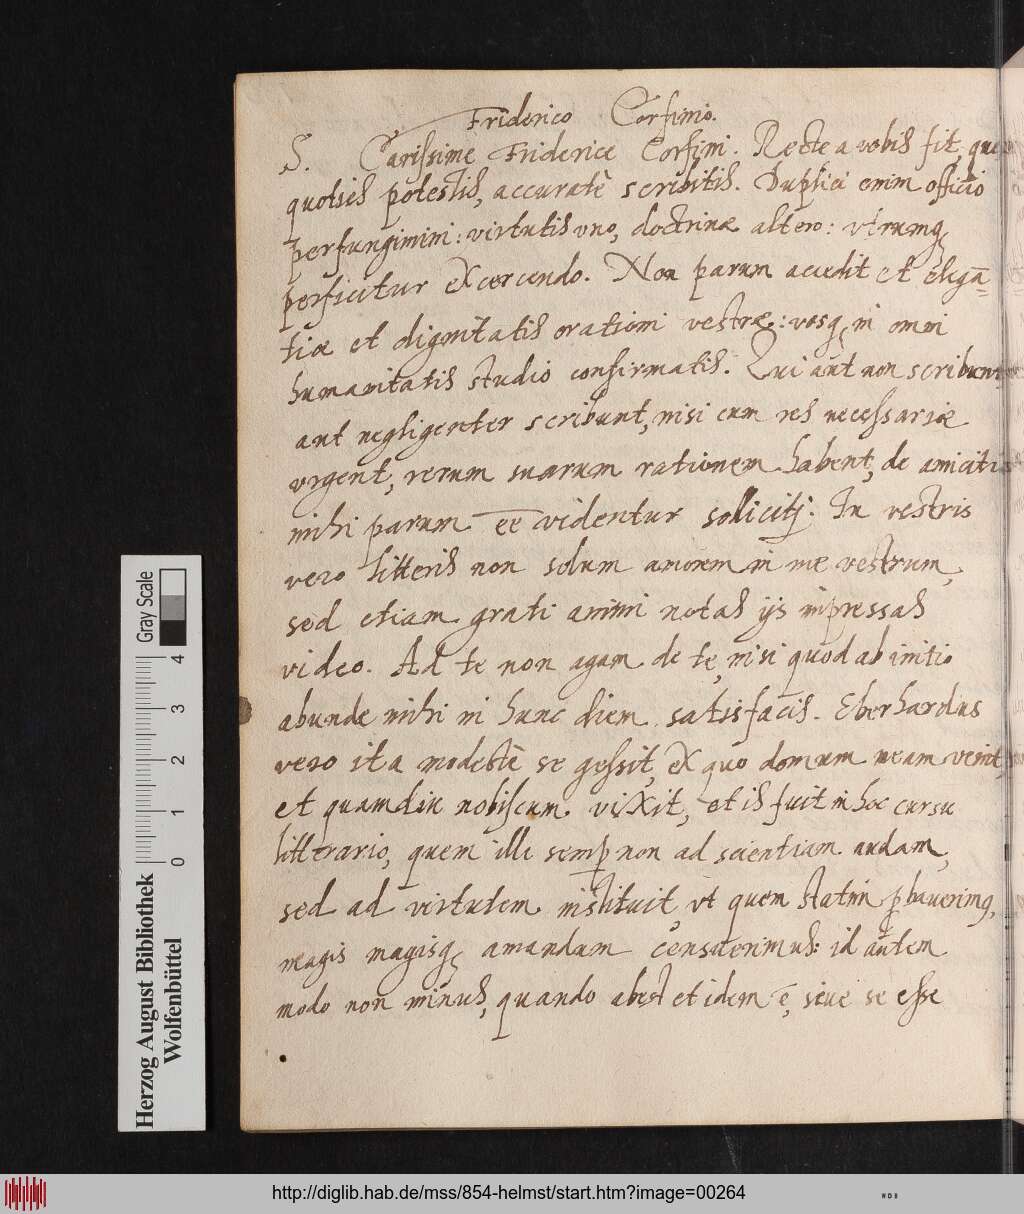 Friderico Corfinio.
S. Carissime Friderice Corfini. Recte a vobis fit, qui
quoties potestis, accuratè scribitis. Duplici enim officio
perfungimini: virtutis uno, doctrinæ altero: utrumq;
perficitur excercendo. Non parum accedit et elegā=
tiæ et dignitatis orationi vestræ: vosq; in omni
humanitatis studio confirmatis. Qui aut non scribunt
aut negligenter scribunt, nisi cum res necessariæ
urgent, rerum suarum rationem habent, de amicitia
mihi parum ēē videntur solliciti. In vestris
vero litteris non solum amorem in me vestrum,
sed etiam grati animi notas ijs impressas
video. Ad te non agam de te, nisi quod ab initio
abunde mihi in hunc diem satisfacis. Eberhardus
vero ita modestè se gessit, ex quo domum meam venit,
et quamdiu nobiscum vixit, et is fuit in hoc cursu
litterario, quem illi semp non ad scientiam nudam,
sed ad virtutem instituit, ut quem statim pbaverimq,
magis magisq; amandum censuerimus: id autem
modo non minus, quando abest et idem ē, sive se esse
Gray Scale
4
3
2
1
0
Herzog August Bibliothek
Wolfenbüttel
http://diglib.hab.de/mss/854-helmst/start.htm?image=00264